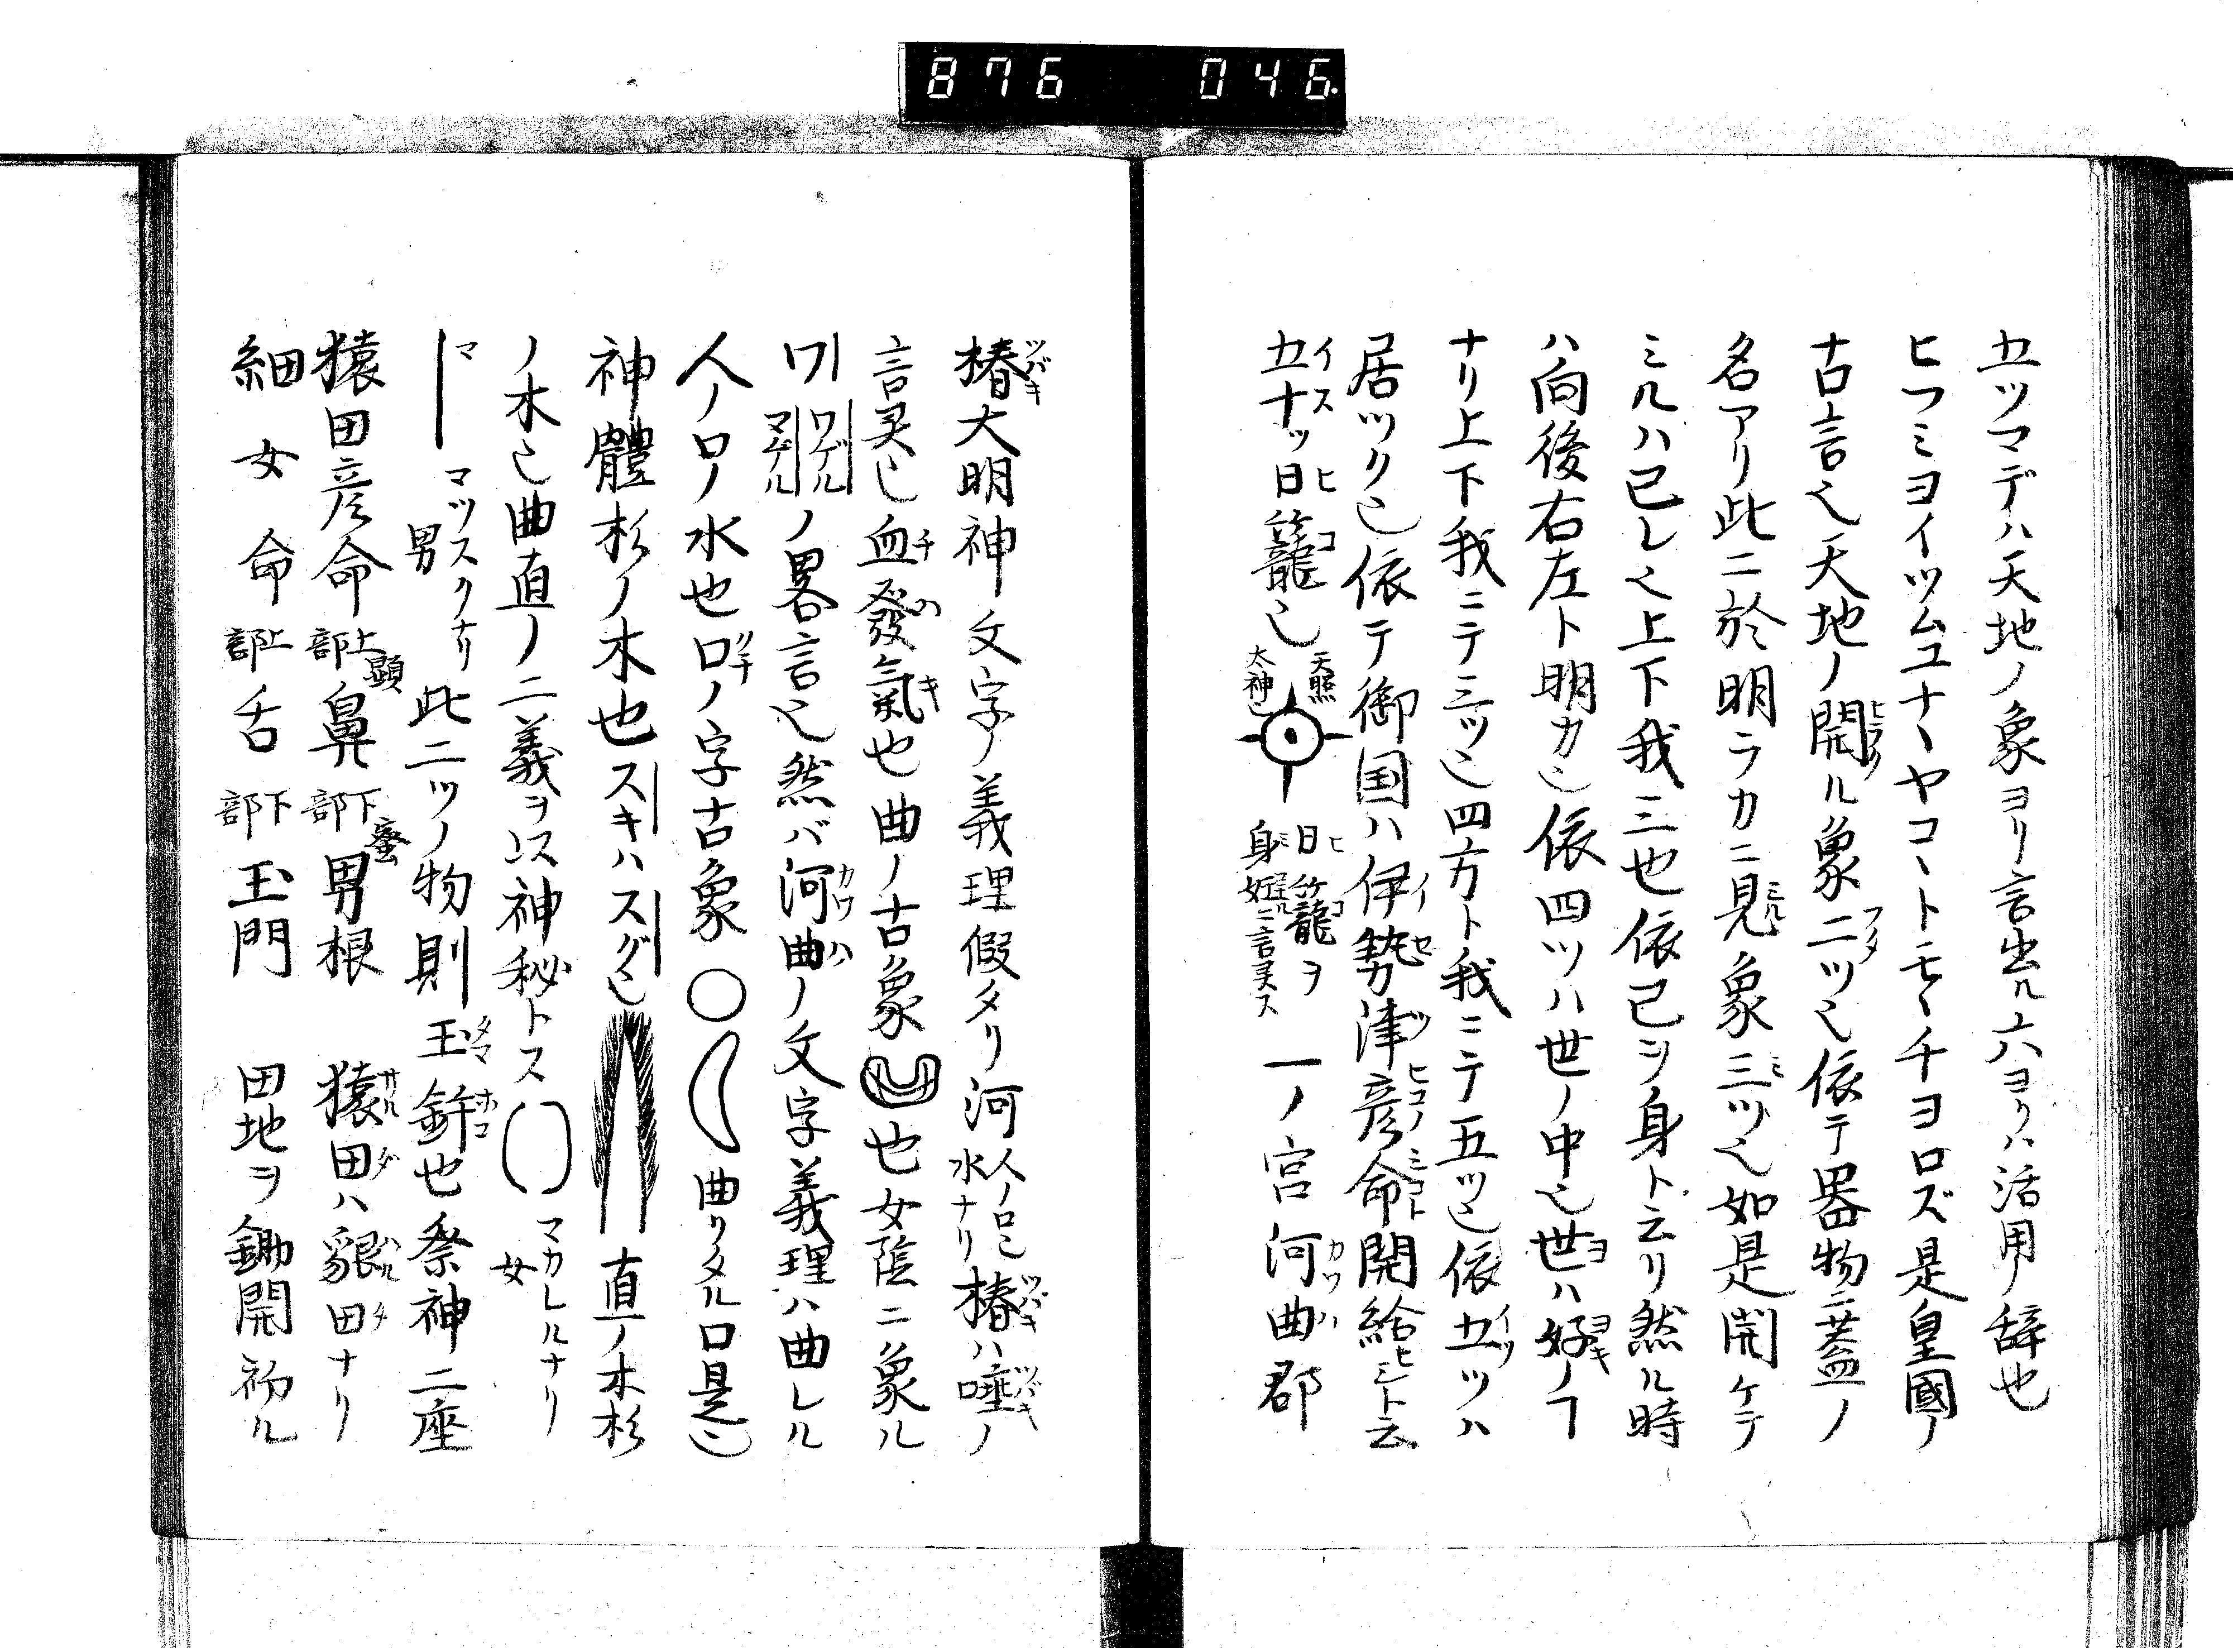 876 046.
五ツマデハ天地ノ象ヨリ言出ル六ヨリハ活用ノ辞也
ヒフミヨイツムユナヽヤコヽトモヽチヨロズ是皇國ノ
古言也天地ノ開ル象二ツ也依テ器物ニ蓋ノ
名アリ此ニ於明ラカニ見象三ツ也如是開ケテ
ミルハ己レ也上下我三也依己ヲ身ト云リ然ル時
ハ向後右左ト明カ也依四ツハ世ノ中也世ハ好ノ
ナリ上下我ニテ三ツ也四方ト我ニテ五ツ也依五ツハ
居ツク也依テ御国ハ伊勢津彦命開給ヒシト云
五十ッ日籠也 天照太神也 日籠ヲ身 ニ言灵ス 一ノ宮河曲郡
椿大明神文字ノ義理假タリ河 人ノ口也水ナリ 椿ハ唾ノ
言灵也血發氣也曲ノ古象 也女陰ニ象ル
ワデル マゲル ノ畧言也然バ河曲ノ文字義理ハ曲レル
人ノ口ノ水也口ノ字古象 曲リタル口是也
神體杉ノ木也スキハスグ也 直ノ木杉
ノ木也曲直ノ二義ヲ以ス神秘トス マカレルナリ 女
マツスクナリ 男 此二ツノ物則玉鉾也祭神二座
猿田彦命 上部 顕 鼻 下部 男根 猿田ハ 田ナリ
細女命 上部 舌 下部 玉門 田地ヲ鋤開初ル